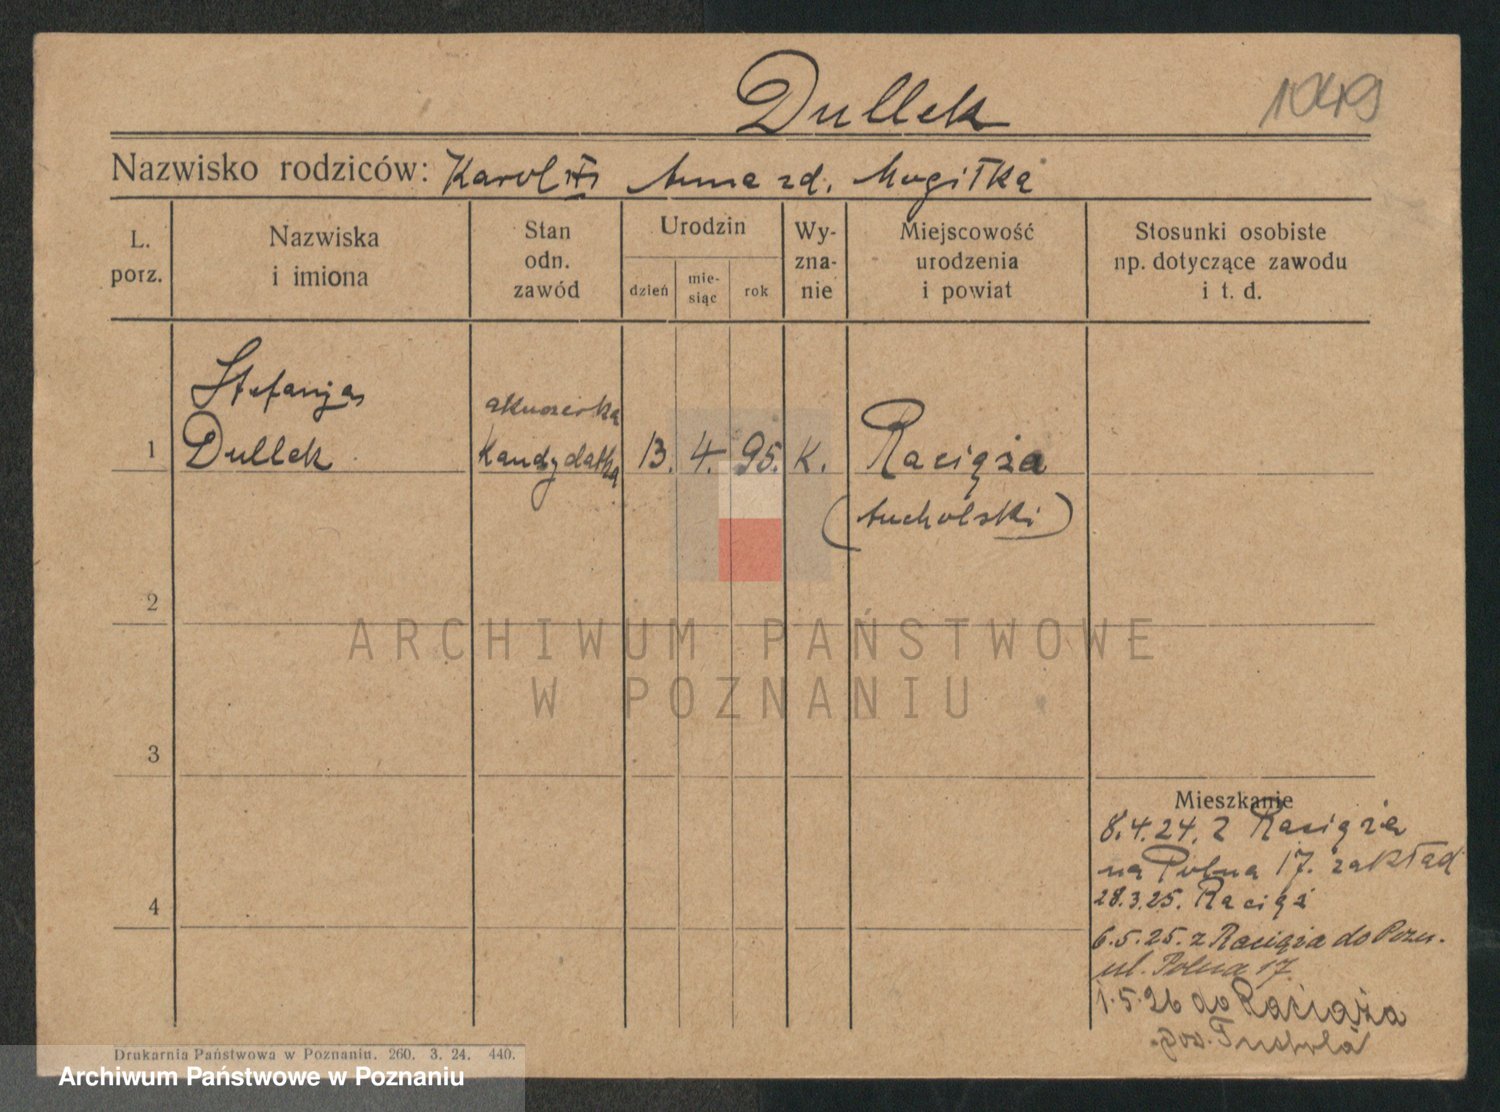 Dullek
1049
Nazwisko rodziców: Karol Anna zd. Mogiłka
L. porz.
Nazwiska i imiona
Stan odn. zawód
Urodzin
dzień
mie-siąc
rok
Wy-zna-nie
Miejscowość urodzenia i powiat
Stosunki osobiste np. dotyczące zawodu i t. d.
1
Stefanja
Dullek
akuszerka
Kandydatka
13. 4. 95. K.
Raciąża
(tucholski)
2
ARCHIWUM PAŃSTWOWE
W POZNANIU
3
4
Mieszkanie
8.4.24. z Raciąża
na Polna 17. zakład
28.3.25. Raciąż
6.5.25. z Raciąża do Pozn.
ul. Polna 17.
1.5.26 do Raciąża
pow. Tuchola
Drukarnia Państwowa w Poznaniu. 260. 3. 24. 440.
Archiwum Państwowe w Poznaniu